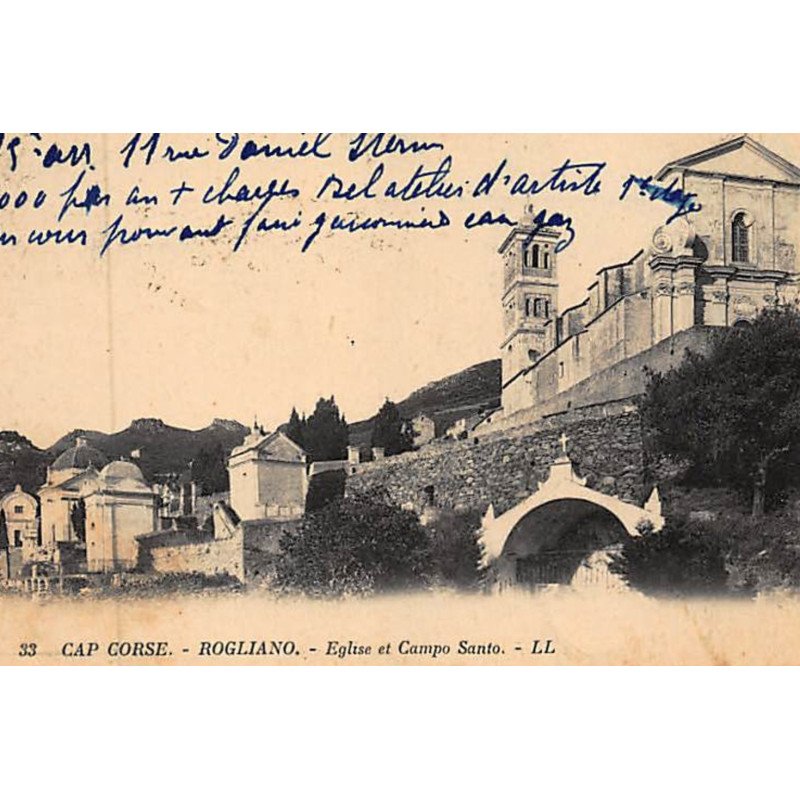 15e arr 11 rue Daniel Stern
000 par an + charges Bel atelier d'artiste
cour pouvant faire garçonnière eau gaz
33 CAP CORSE. - ROGLIANO. - Eglise et Campo Santo. - LL